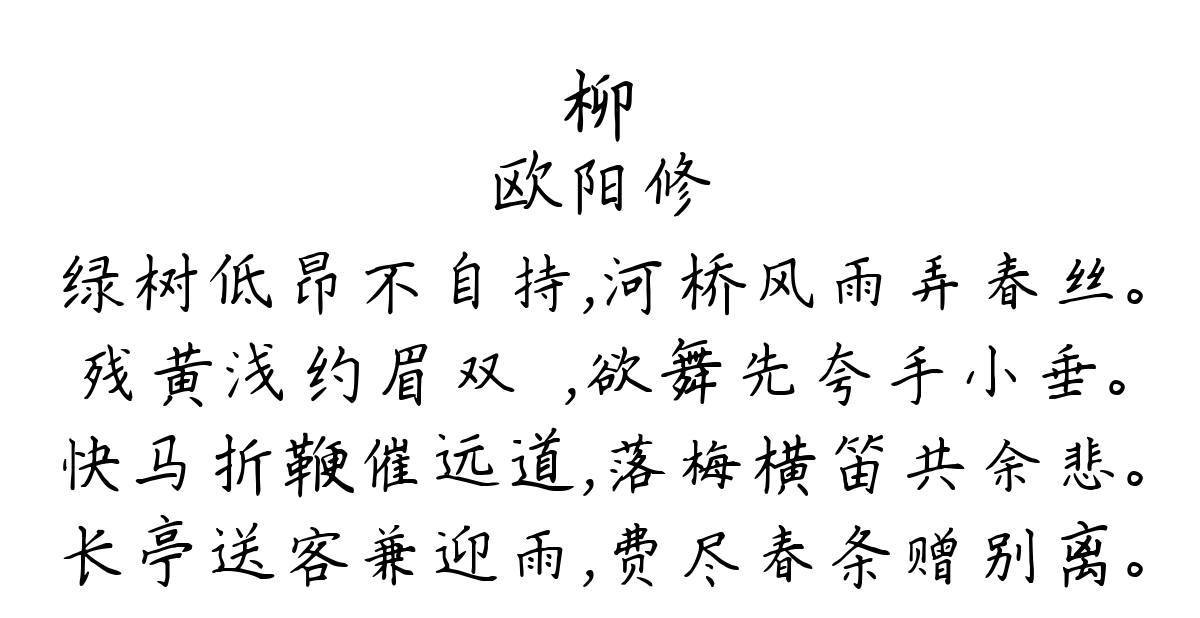 柳
欧阳修
绿树低昂不自持,河桥风雨弄春丝。
残黄浅约眉双 ,欲舞先夸手小垂。
快马折鞭催远道,落梅横笛共余悲。
长亭送客兼迎雨,费尽春条赠别离。